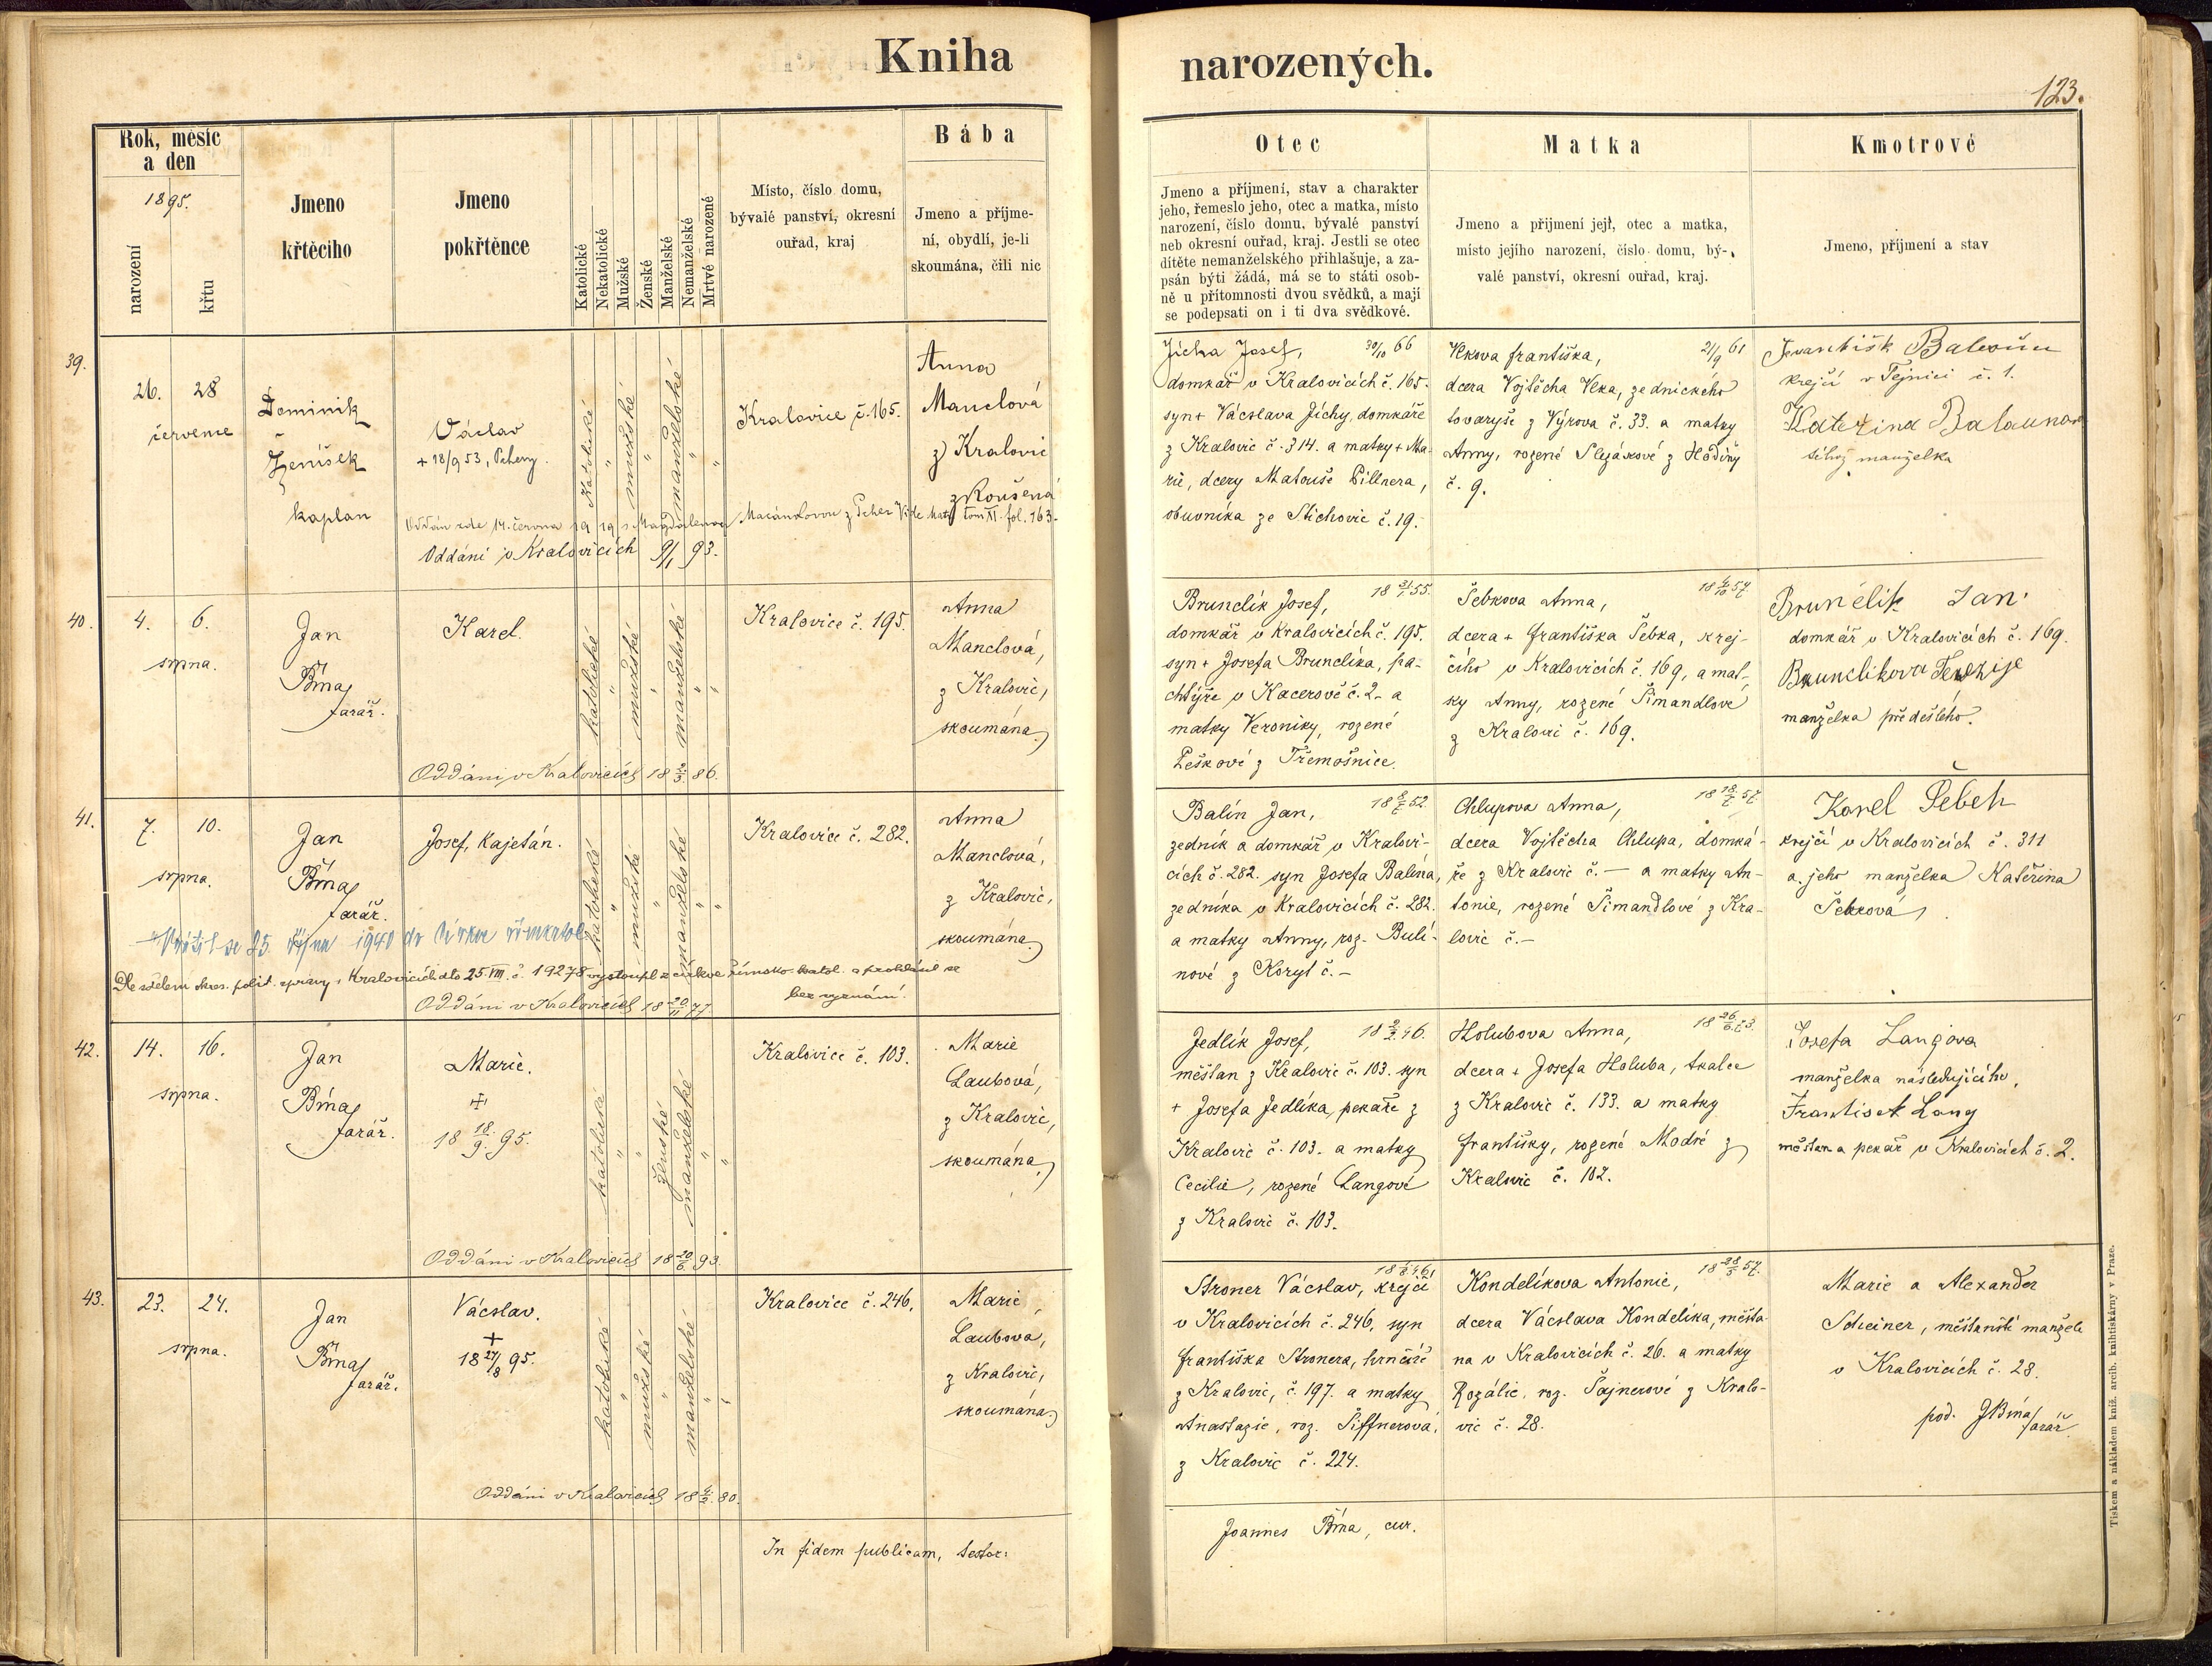 Kniha
narozených.
123.
Rok, měsíc
a den
1895.
narození
křtu
Jmeno
křtěcího
Jmeno
pokřtěnce
Katolické
Nekatolické
Mužské
Ženské
Manželské
Nemanželské
Mrtvě narozené
Místo, číslo domu,
bývalé panství, okresní
ouřad, kraj
Bába
Jmeno a příjme-
ní, obydlí, je-li
skoumána, čili nic
Otec
Jmeno a příjmení, stav a charakter
jeho, řemeslo jeho, otec a matka, místo
narození, číslo domu, bývalé panství
neb okresní ouřad, kraj. Jestli se otec
dítěte nemanželského přihlašuje, a za-
psán býti žádá, má se to státi osob-
ně u přítomnosti dvou svědků, a mají
se podepsati on i ti dva svědkové.
Matka
Jmeno a přijmení její, otec a matka,
místo jejího narození, číslo domu, bý-
valé panství, okresní ouřad, kraj.
Kmotrové
Jmeno, příjmení a stav
39.
26. 28
července
Dominik
Ženíšek
kaplan
Václav
+ 18/9 53, Pcheny.
Katolické
mužské
manželské
Kralovice č. 165.
Anna
Manclová
z Kralovic
zkoušená
Oddán zde 14. června 1919 s Magdalenou
Oddáni v Kralovicích 9/1 93.
Jícha Josef, 30/10 66
domkář v Kralovicích č. 165.
syn + Vácslava Jíchy, domkáře
z Kralovic č. 314. a matky + Ma-
rie, dcery Matouše Pillnera,
obuvníka ze Stichovic č. 19.
Vlkova františka, 21/9 61
dcera Vojtěcha Vlka, zednického
tovaryše z Výrova č. 33. a matky
Anny, rozené Slezákové z Hodiny
č. 9.
krejčí v Tejnici č. 1.
Kateřina
téhož manželka
40.
4. 6.
srpna.
Jan
Bína,
farář.
Karel.
katolické
mužské
manželské
Kralovice č. 195.
Anna
Manclová,
z Kralovic,
skoumána.
Oddáni v Kralovicích 86.
Brunclík Josef, 55.
domkář v Kralovicích č. 195.
syn + Josefa Brunclíka, pa-
chtýře v Kacerově č. 2. a
matky Veroniky, rozené
Peškové z Třemošnice.
Šebkova Anna, 57.
dcera + františka Šebka, krej-
čího v Kralovicích č. 169, a mat-
ky Anny, rozené Šimandlové
z Kralovic č. 169.
Brunclik Jan
domkář v Kralovicích č. 169.
Brunclikova Terezije
manželka předešlého.
41.
7. 10.
srpna.
Jan
Bína,
farář.
Josef, Kajetán.
katolické
mužské
manželské
Kralovice č. 282.
Anna
Manclová,
z Kralovic,
skoumána.
Vrátil se 25. října 1940 do církve římkatol.
Dle sdělení okres. polit. správy v Kralovicích dto 25. VIII. č. 19278 vystoupil z církve římsko-katol. a prohlásil se
bez vyznání.
Oddáni v Kralovicích 18 20/11 77.
Balín Jan, 52.
zedník a domkář v Kralovi-
cích č. 282. syn Josefa Balína,
zedníka v Kralovicích č. 282.
a matky Anny, roz. Bulí-
nové z Koryt č. -
Chlupova Anna, 57.
dcera Vojtěcha Chlupa, domká-
ře z Kralovic č. — a matky An-
tonie, rozené Šimandlové z Kra-
lovic č. -
Karel Šebek
krejčí v Kralovicích č. 311
a jeho manželka Kateřina
Šebková
42.
14. 16.
srpna.
Jan
Bína,
farář.
Marie.
+
18 18/9. 95.
katolické
ženské
manželské
Kralovice č. 103.
Marie
Laubová,
z Kralovic,
skoumána.
Oddáni v Kralovicích 18 20/6 93.
Jedlík Josef, 46.
měšťan z Kralovic č. 103. syn
+ Josefa Jedlíka, pekaře z
Kralovic č. 103. a matky
Cecilie, rozené Langové
z Kralovic č. 103.
Holubova Anna,
dcera + Josefa Holuba, tkalce
z Kralovic č. 133. a matky
františky, rozené Modré z
Kralovic č. 102.
Josefa Langova
manželka následujícího,
Frantisek Lang
měšťan a pekář v Kralovicích č. 2.
43.
23. 24.
srpna.
Jan
Bína,
farář.
Vácslav.
+
18 27/8 95.
katolické
mužské
manželské
Kralovice č. 246,
Marie
Laubova,
z Kralovic,
skoumána.
Oddáni v Kralovicích 80.
Stroner Vácslav, krejčí
v Kralovicích č. 246, syn
františka Stronera, hrnčíře
z Kralovic, č. 197. a matky
Anastazie, roz. Šiffnerová,
z Kralovic č. 224.
Kondelíkova Antonie, 57.
dcera Vácslava Kondelíka, měšťa-
na v Kralovicích č. 26. a matky
Rozálie, roz. Šajnerové z Kralo-
vic č. 28.
Marie a Alexander
Scheiner, měšťanští manželé
v Kralovicích č. 28.
pod. J Bína, farář.
In fidem publicam, testor:
Joannes Bína, cur.
Tiskem a nákladem kníž. arcib. knihtiskárny v Praze.